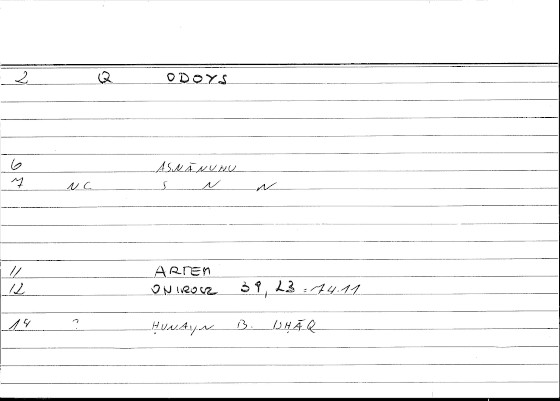 2 Q ODOYS
6 ASNĀNUHU
7 NC S N N
11 ARTEM
12 ONIROCR 39, 23 = 74.11
14 ? ḤUNAYN B. ISḤĀQ